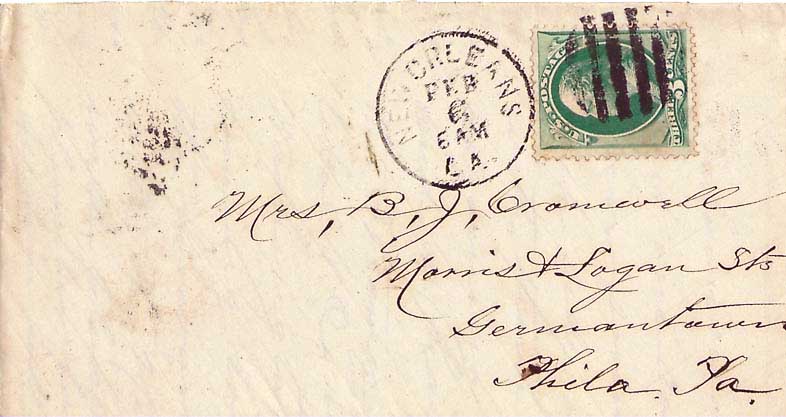 NEW ORLEANS
FEB
6
6 AM
LA.
U.S. POSTAGE
Mrs, B, J, Cromwell
Morris & Logan Sts
Germantown
Phila. Pa.